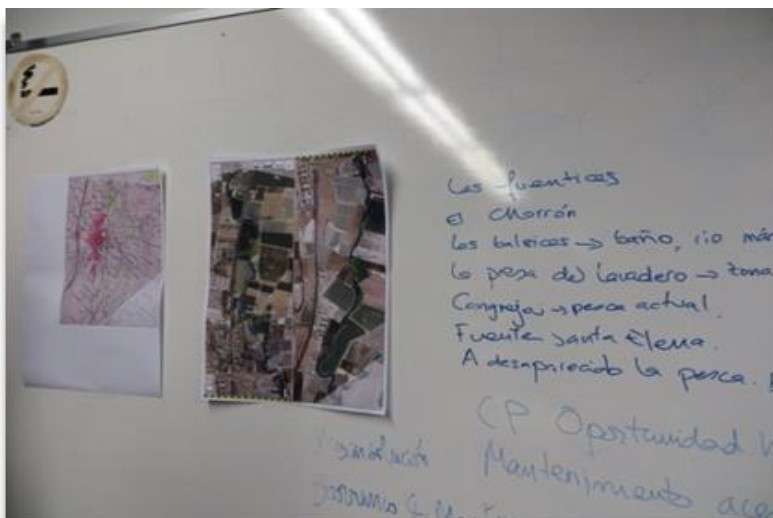 Las fuenticas
El Chorrón
Las balsicas → baño, rio
La presa del Lavadero → zona
Cangrejo → pesca actual.
Fuente Santa Elena.
A desaparecido la pesca.
CP Oportunidad
Mantenimiento